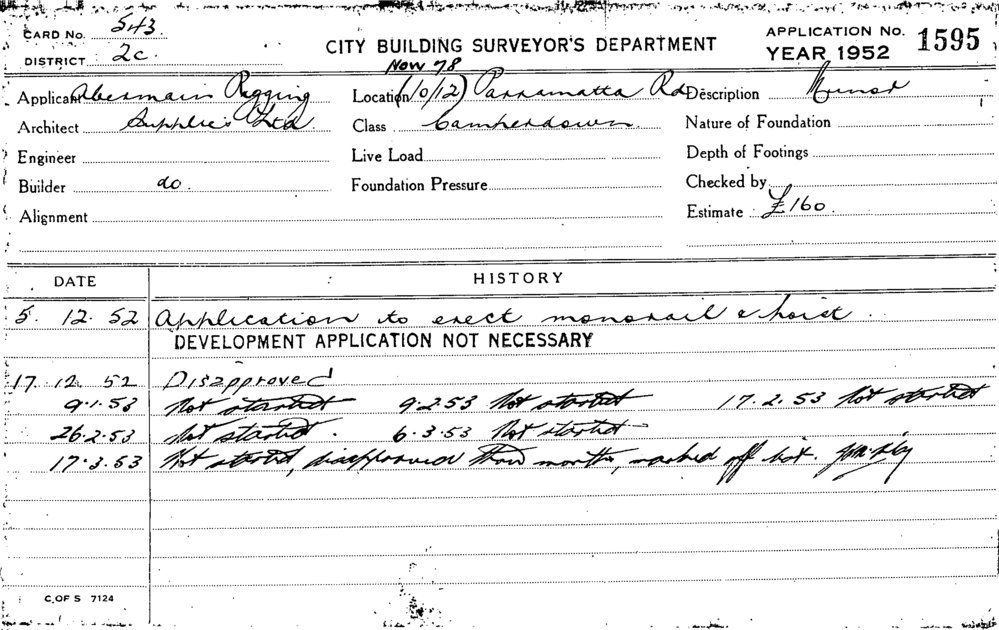 CARD No. 543
DISTRICT 2c.
CITY BUILDING SURVEYOR'S DEPARTMENT
APPLICATION No. 1595
YEAR 1952
Now 78
Applicant Abermain Rigging Location (10/12) Parramatta Rd Description Minor
Architect Supplies Ltd. Class Camperdown Nature of Foundation
Engineer Live Load Depth of Footings
Builder do. Foundation Pressure Checked by
Alignment Estimate £160.
DATE HISTORY
5. 12. 52 Application to erect monorail & hoist.
DEVELOPMENT APPLICATION NOT NECESSARY
17. 12. 52 Disapproved
9.1.53 Not started 9.2.53 Not started 17.2.53 Not started
26.2.53 Not started. 6.3.53 Not started
17.3.53 Not started, disapproved three months, marked off list.
C. OF S 7124